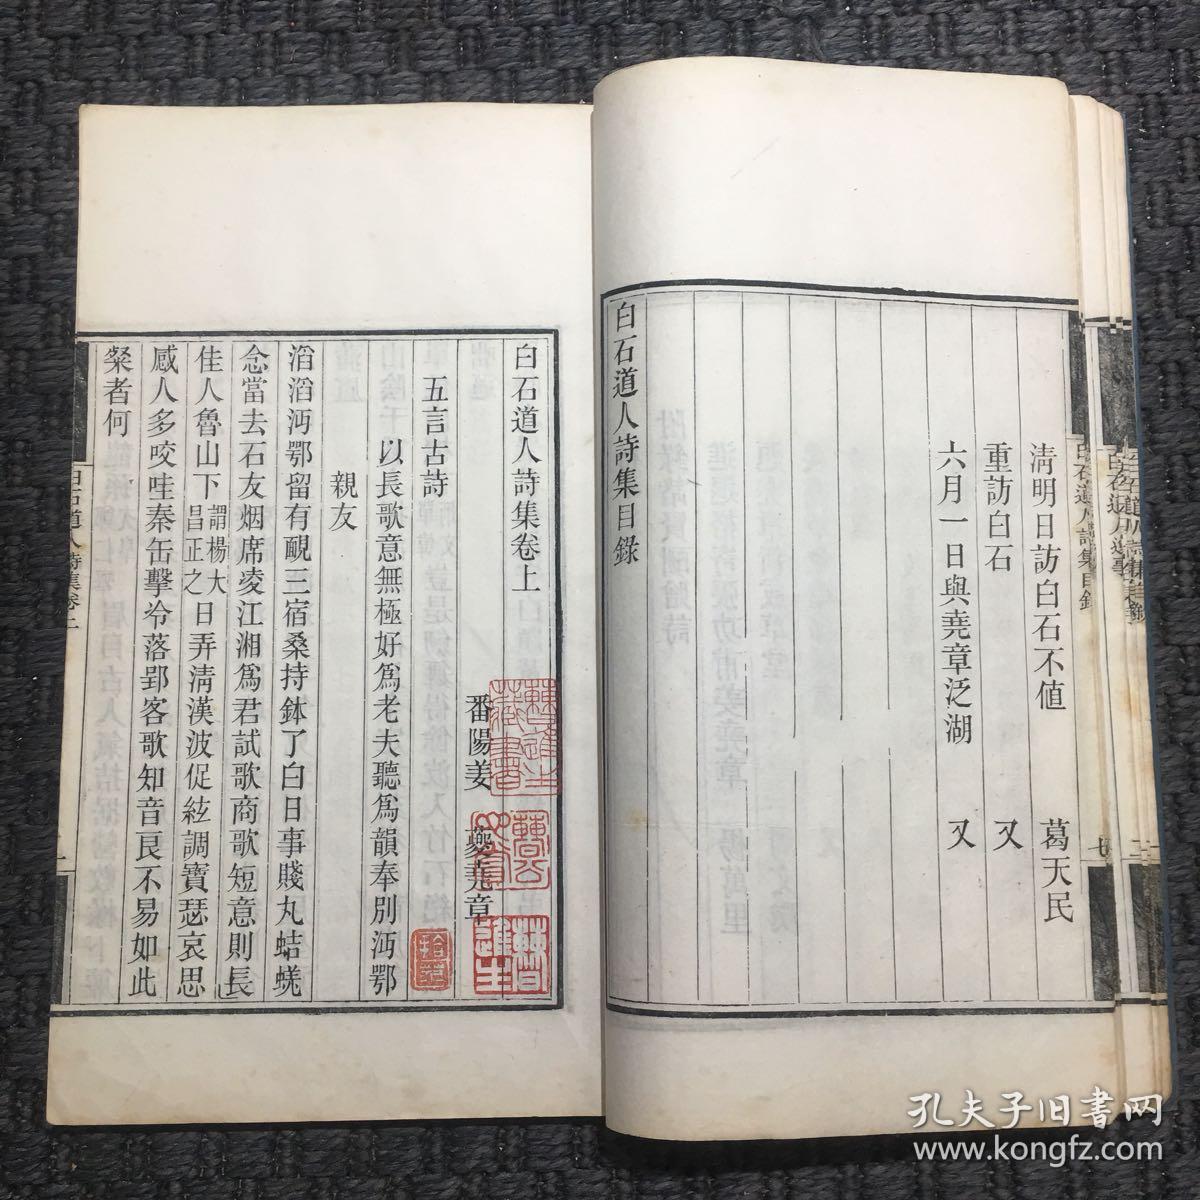 清明日訪白石不值 葛天民
重訪白石 又
六月一日與堯章泛湖 又
白石道人詩集目錄
白石道人詩集目錄
七
白石道人詩集卷上
番陽姜 夔堯章
五言古詩
以長歌意無極好為老夫聽為韻奉別沔鄂
親友
滔滔沔鄂留有靦三宿桑持鉢了白日事賤丸蛣蜣
念當去石友烟席凌江湘為君試歌商歌短意則長
佳人魯山下謂楊大昌正之日弄清漢波促絃調寶瑟哀思
感人多咬哇秦缶擊冷落郢客歌知音良不易如此
粲者何
白石道人詩集卷上
一
孔夫子旧书网
www.kongfz.com